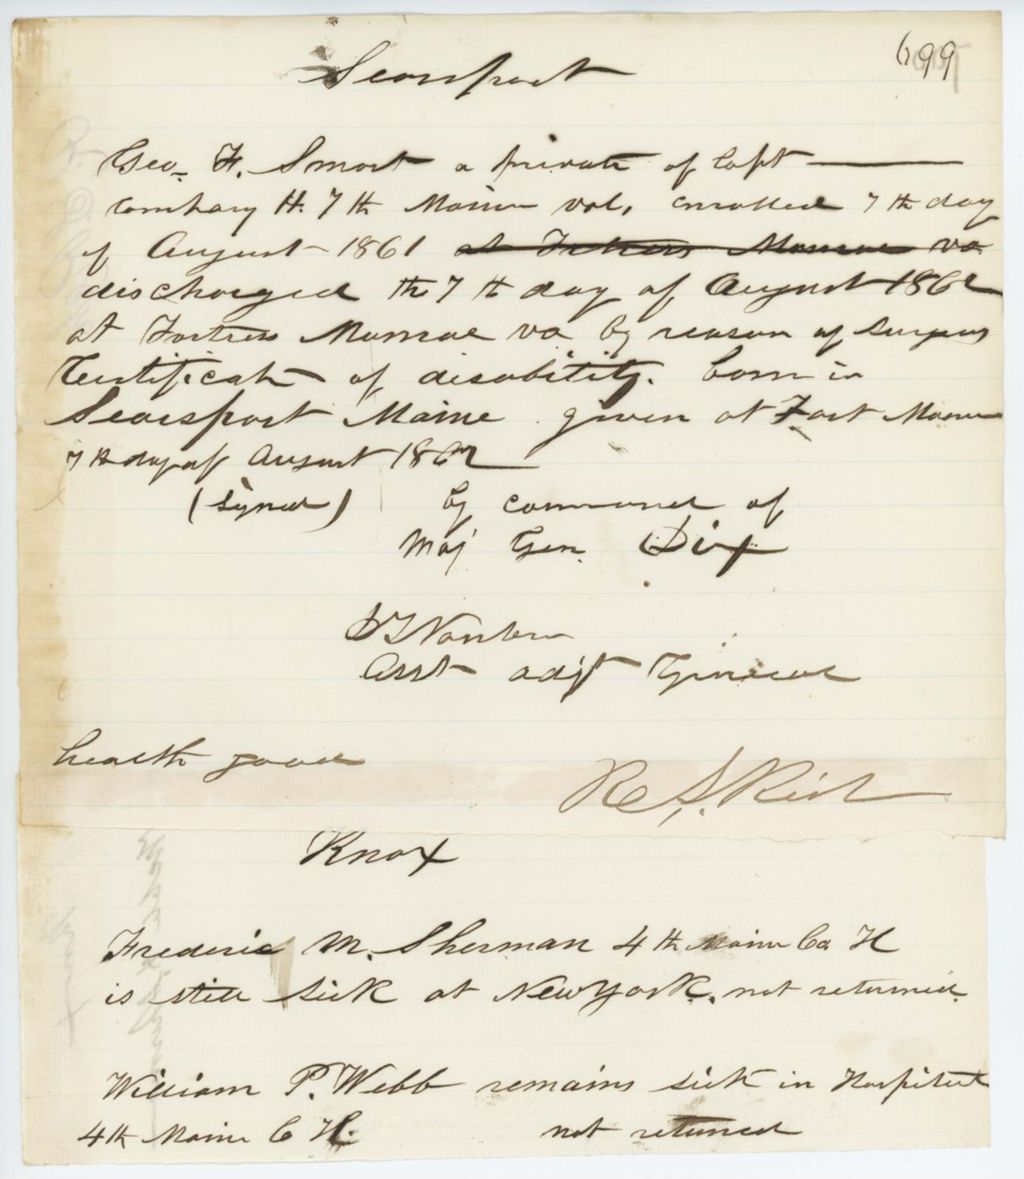 699
Searsport
Geo. F. Smart a private of Capt
Company H. 7th Maine vol. enrolled 7th day
of August 1861 at Fortress Monroe va
discharged the 7th day of August 1862
at Fortress Monroe va by reason of Surgeons
Certificate of disability. born in
Searsport Maine given at Fort Monroe
7th day of August 1862
(Signed) by command of
Maj Gen. Dix
Asst adjt General
health good
R. S. Rich
Knox
Frederic M. Sherman 4th Maine Co H
is still sick at New York. not returned.
William P. Webb remains sick in Hospital
4th Maine C H. not returned